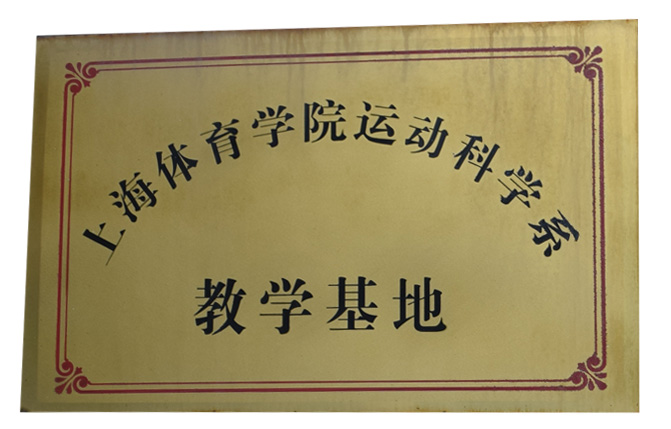 上海体育学院运动科学系
教学基地